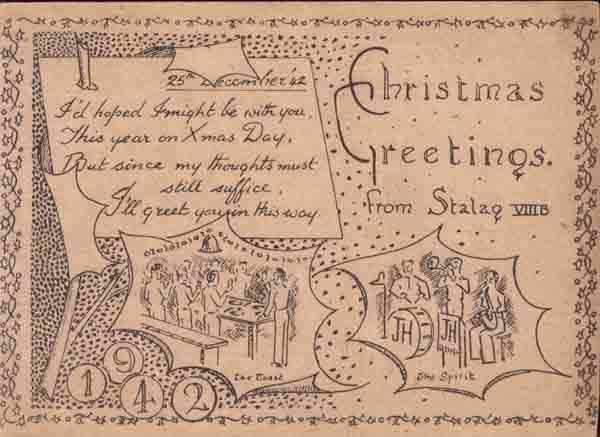 25th December '42
I'd hoped I might be with you,
This year on Xmas Day,
But since my thoughts must
still suffice,
I'll greet you in this way.
Christmas
Greetings.
from Stalag VIIIB
The Toast
The Spirit
JH
JH
1942